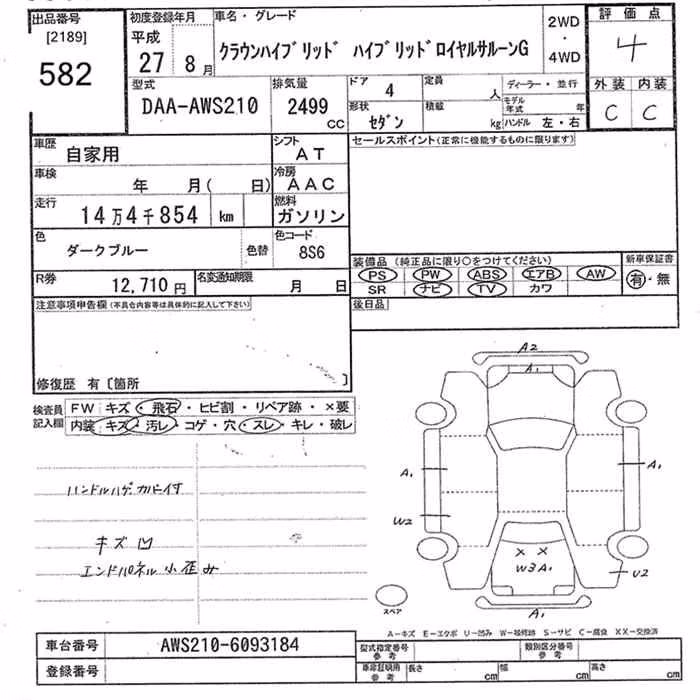 出品番号 初度登録年月 車名・グレード 2WD・4WD 評価点
[2189] 平成 4
582 27 8月 クラウンハイブリッド ハイブリッドロイヤルサルーンG
型式 排気量 ドア 4 定員 人 ディーラー・並行 外装 内装
DAA-AWS210 2499 CC 形状 セダン 積載 kg モデル年式 年 ハンドル 左・右 C C
車歴 自家用 シフト AT セールスポイント(正常に機能するものに限ります)
車検 年 月( 日) 冷房 AAC
走行 14万4千854 km 燃料 ガソリン
色 ダークブルー 色替 色コード 8S6
装備品(純正品に限り○をつけてください) 新車保証書
R券 12,710円 名変通知期限 月 日 PS PW ABS エアB AW 有・無
SR ナビ TV カワ
注意事項申告欄(不具合内容等は具体的に記入して下さい) 後日品
修復歴 有〔箇所 〕
検査員記入欄 FW キズ・飛石・ヒビ割・リペア跡・×要
内装 キズ・汚レ・コゲ・穴・スレ・キレ・破レ
ハンドルハゲ カバー付
キズ 凹
エンドパネル小歪み
A2
A1
A1 A1
W2
X X
W3 A1
U2
スペア
A1
A-キズ E-エクボ U-凹み W-補修跡 S-サビ C-腐食 XX-交換済
車台番号 AWS210-6093184 型式指定番号 参考 類別区分番号 参考
登録番号 車庫証明用 参考 長さ cm 幅 cm 高さ cm